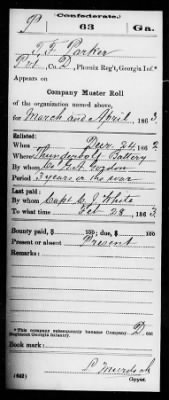 (Confederate.)
P 63 Ga.
T. F. Parker
Pvt, Co. D, Phœnix Reg't, Georgia Inf.*
Appears on
Company Muster Roll
of the organization named above,
for March and April, 1863.
Enlisted:
When Decr. 24, 1862
Where Thunderbolt Battery
By whom G. A. Gordon
Period 3 years or the war
Last paid:
By whom Capt. C. J. White
To what time Feb 28, 1863.
Bounty paid $ 100; due $ 100
Present or absent Present
Remarks:
*This company subsequently became Company D, 63
Regiment Georgia Infantry.
Book mark:
L. Murdoch
(642) Copyist.